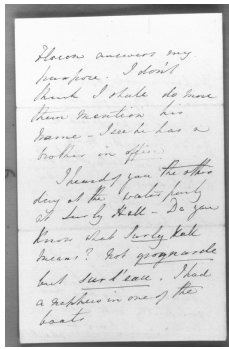 answers my
purpose. I don't
think I shall do more
than mention his
name - I see he has a
brother in office
I heard of you the other
day at the water party
at Surly Hall - Do you
know what Surly Hall
means? Not
but sur l'eau. I had
a nephew in one of the
boats